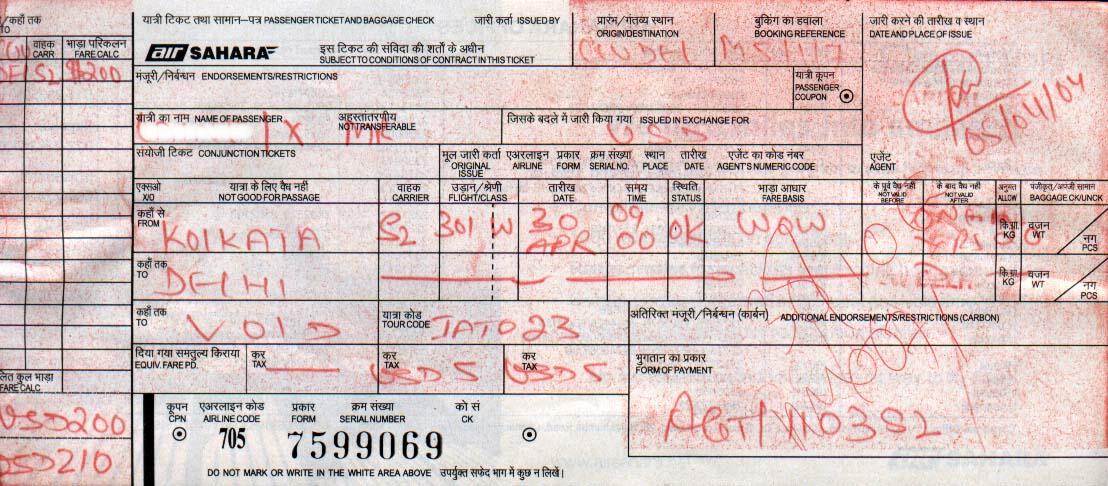 /कहाँ तक
TO
वाहक भाड़ा परिकलन
CARR FARE CALC
S2 $200
यात्री टिकट तथा सामान-पत्र PASSENGER TICKET AND BAGGAGE CHECK
जारी कर्ता ISSUED BY
प्रारंभ/गंतव्य स्थान
ORIGIN/DESTINATION
बुकिंग का हवाला
BOOKING REFERENCE
जारी करने की तारीख व स्थान
DATE AND PLACE OF ISSUE
air SAHARA
इस टिकट की संविदा की शर्तों के अधीन
SUBJECT TO CONDITIONS OF CONTRACT IN THIS TICKET
मंजूरी/निर्बन्धन ENDORSEMENTS/RESTRICTIONS
यात्री कूपन
PASSENGER
COUPON
05/04/04
यात्री का नाम NAME OF PASSENGER
अहस्तांतरणीय
NOT TRANSFERABLE
MR
जिसके बदले में जारी किया गया ISSUED IN EXCHANGE FOR
USD
संयोजी टिकट CONJUNCTION TICKETS
मूल जारी कर्ता एअरलाइन प्रकार क्रम संख्या स्थान तारीख एजेंट का कोड नंबर
ORIGINAL ISSUE AIRLINE FORM SERIAL NO. PLACE DATE AGENT'S NUMERIC CODE
एजेंट
AGENT
एक्सओ यात्रा के लिए वैध नही वाहक उड़ान/श्रेणी तारीख समय स्थिति भाड़ा आधार के पूर्व वैध नही के बाद वैध नही अनुमत पंजीकृत/अपंजी सामान
X/O NOT GOOD FOR PASSAGE CARRIER FLIGHT/CLASS DATE TIME STATUS FARE BASIS NOT VALID BEFORE NOT VALID AFTER ALLOW BAGGAGE CK/UNCK
कहाँ से
FROM KOLKATA S2 301 W 30 APR 09 00 OK WOW
कि.ग्रा. वजन नग
KG WT PCS
कहाँ तक
TO DELHI
कि.ग्रा. वजन नग
KG WT PCS
कहाँ तक
TO VOID
यात्रा कोड
TOUR CODE IATO23
अतिरिक्त मंजूरी/निर्बन्धन (कार्बन) ADDITIONAL ENDORSEMENTS/RESTRICTIONS (CARBON)
दिया गया समतुल्य किराया कर कर कर
EQUIV. FARE PD. TAX TAX TAX
USD 5 USD 5
भुगतान का प्रकार
FORM OF PAYMENT
AGT/1110382
कुल भाड़ा
FARE CALC
USD200
USD210
कूपन एअरलाइन कोड प्रकार क्रम संख्या को सं
CPN AIRLINE CODE FORM SERIAL NUMBER CK
705 7599069
DO NOT MARK OR WRITE IN THE WHITE AREA ABOVE उपर्युक्त सफेद भाग में कुछ न लिखें।